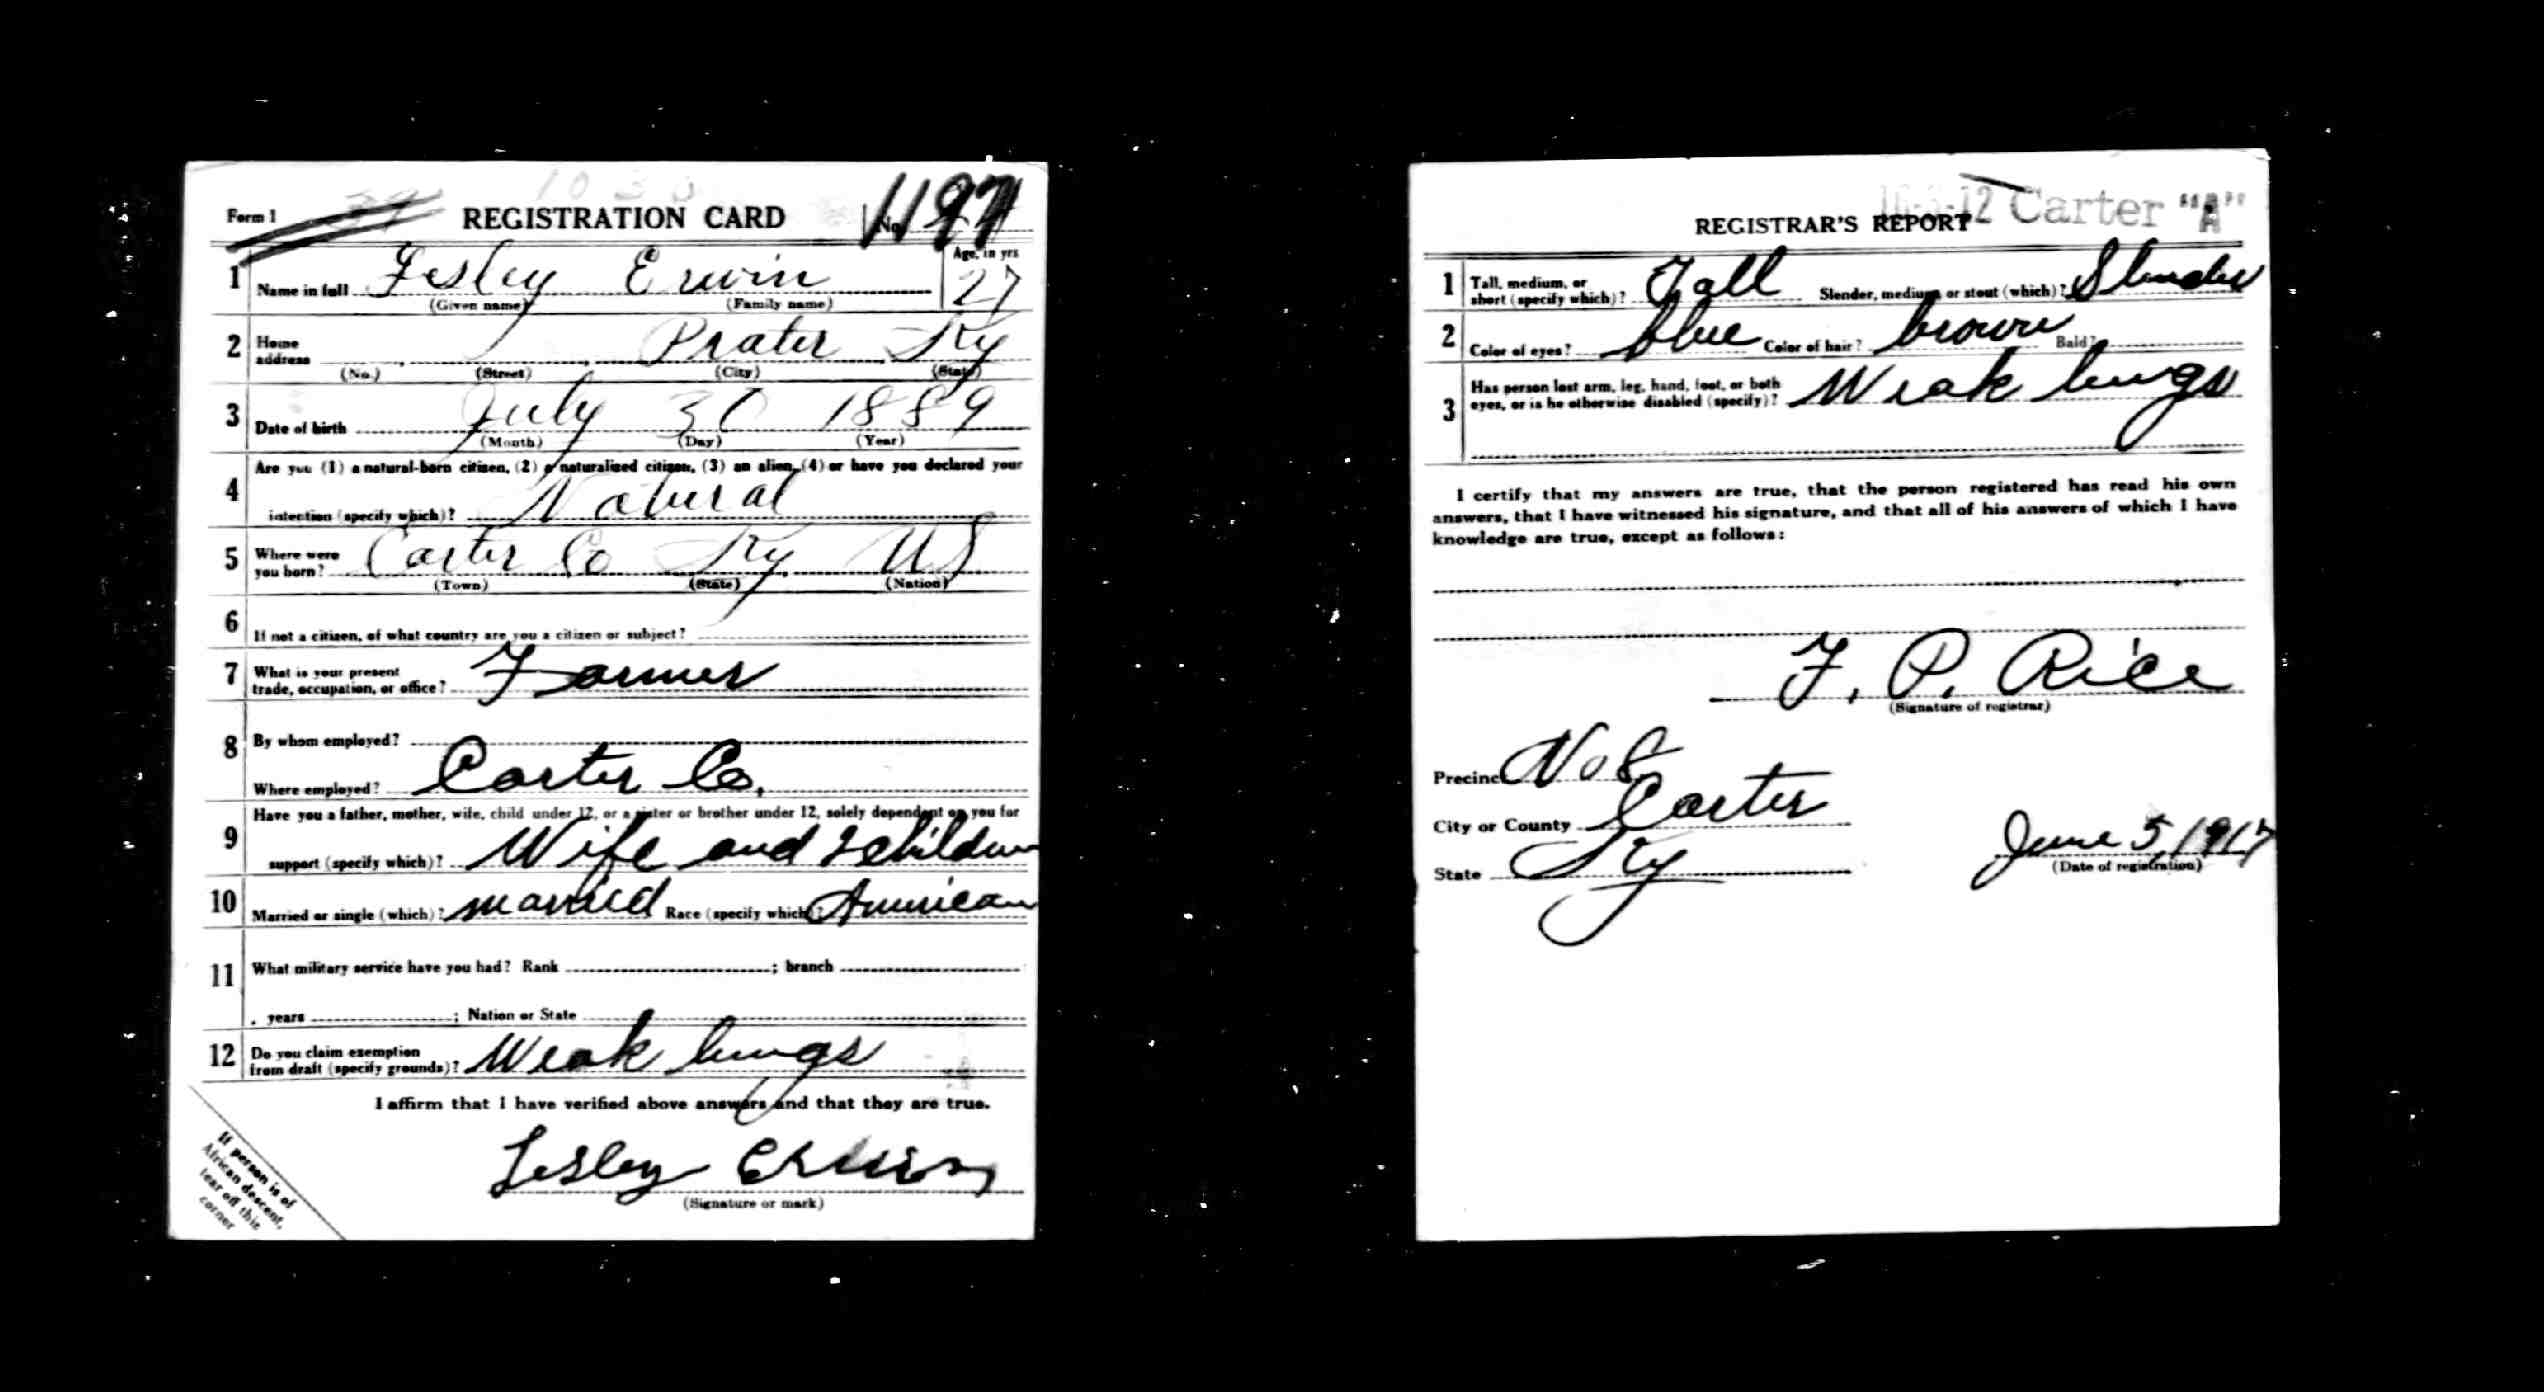 Form 1
REGISTRATION CARD
No. 1197
1 Name in full Lesley Erwin
(Given name) (Family name)
Age, in yrs
27
2 Home address Prater Ky
(No.) (Street) (City) (State)
3 Date of birth July 30 1889
(Month) (Day) (Year)
4 Are you (1) a natural-born citizen, (2) a naturalized citizen, (3) an alien, (4) or have you declared your
intention (specify which)? Natural
5 Where were you born? Carter Co Ky US
(Town) (State) (Nation)
6 If not a citizen, of what country are you a citizen or subject?
7 What is your present
trade, occupation, or office? Farmer
8 By whom employed?
Where employed? Carter Co.
9 Have you a father, mother, wife, child under 12, or a sister or brother under 12, solely dependent on you for
support (specify which)? Wife and 2 children
10 Married or single (which)? married Race (specify which)? American
11 What military service have you had? Rank ; branch
years ; Nation or State
12 Do you claim exemption
from draft (specify grounds)? Weak lungs
I affirm that I have verified above answers and that they are true.
Lesley Erwin
(Signature or mark)
If person is of
African descent,
tear off this
corner
Carter "A"
REGISTRAR'S REPORT
1 Tall, medium, or
short (specify which)? Tall Slender, medium or stout (which)? Slender
2 Color of eyes? blue Color of hair? brown Bald?
3 Has person lost arm, leg, hand, foot, or both
eyes, or is he otherwise disabled (specify)? Weak lungs
I certify that my answers are true, that the person registered has read his own
answers, that I have witnessed his signature, and that all of his answers of which I have
knowledge are true, except as follows:
F. P. Rice
(Signature of registrar)
Precinct No 8
City or County Carter
State Ky
June 5, 1917
(Date of registration)